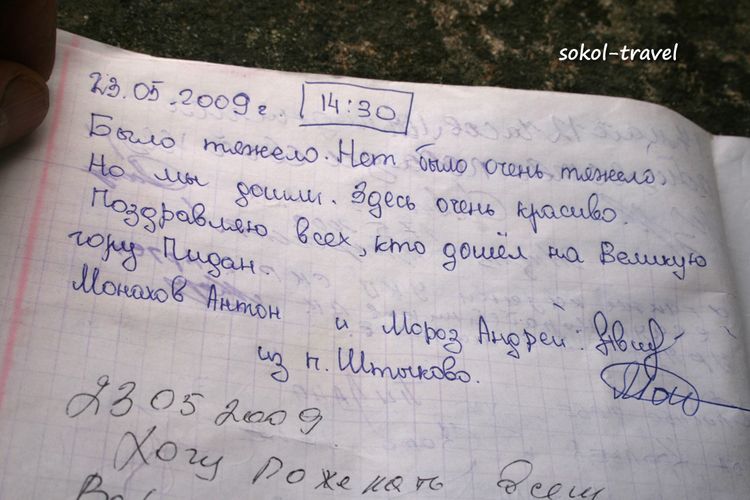 sokol-travel
23.05.2009г. 14:30
Было тяжело. Нет было очень тяжело.
Но мы дошли. Здесь очень красиво.
Поздравляю всех, кто дошёл на Великую
гору Пидан
Монахов Антон и Мороз Андрей:
из п. Штыково.
23 05 2009
Хочу пожелать всем